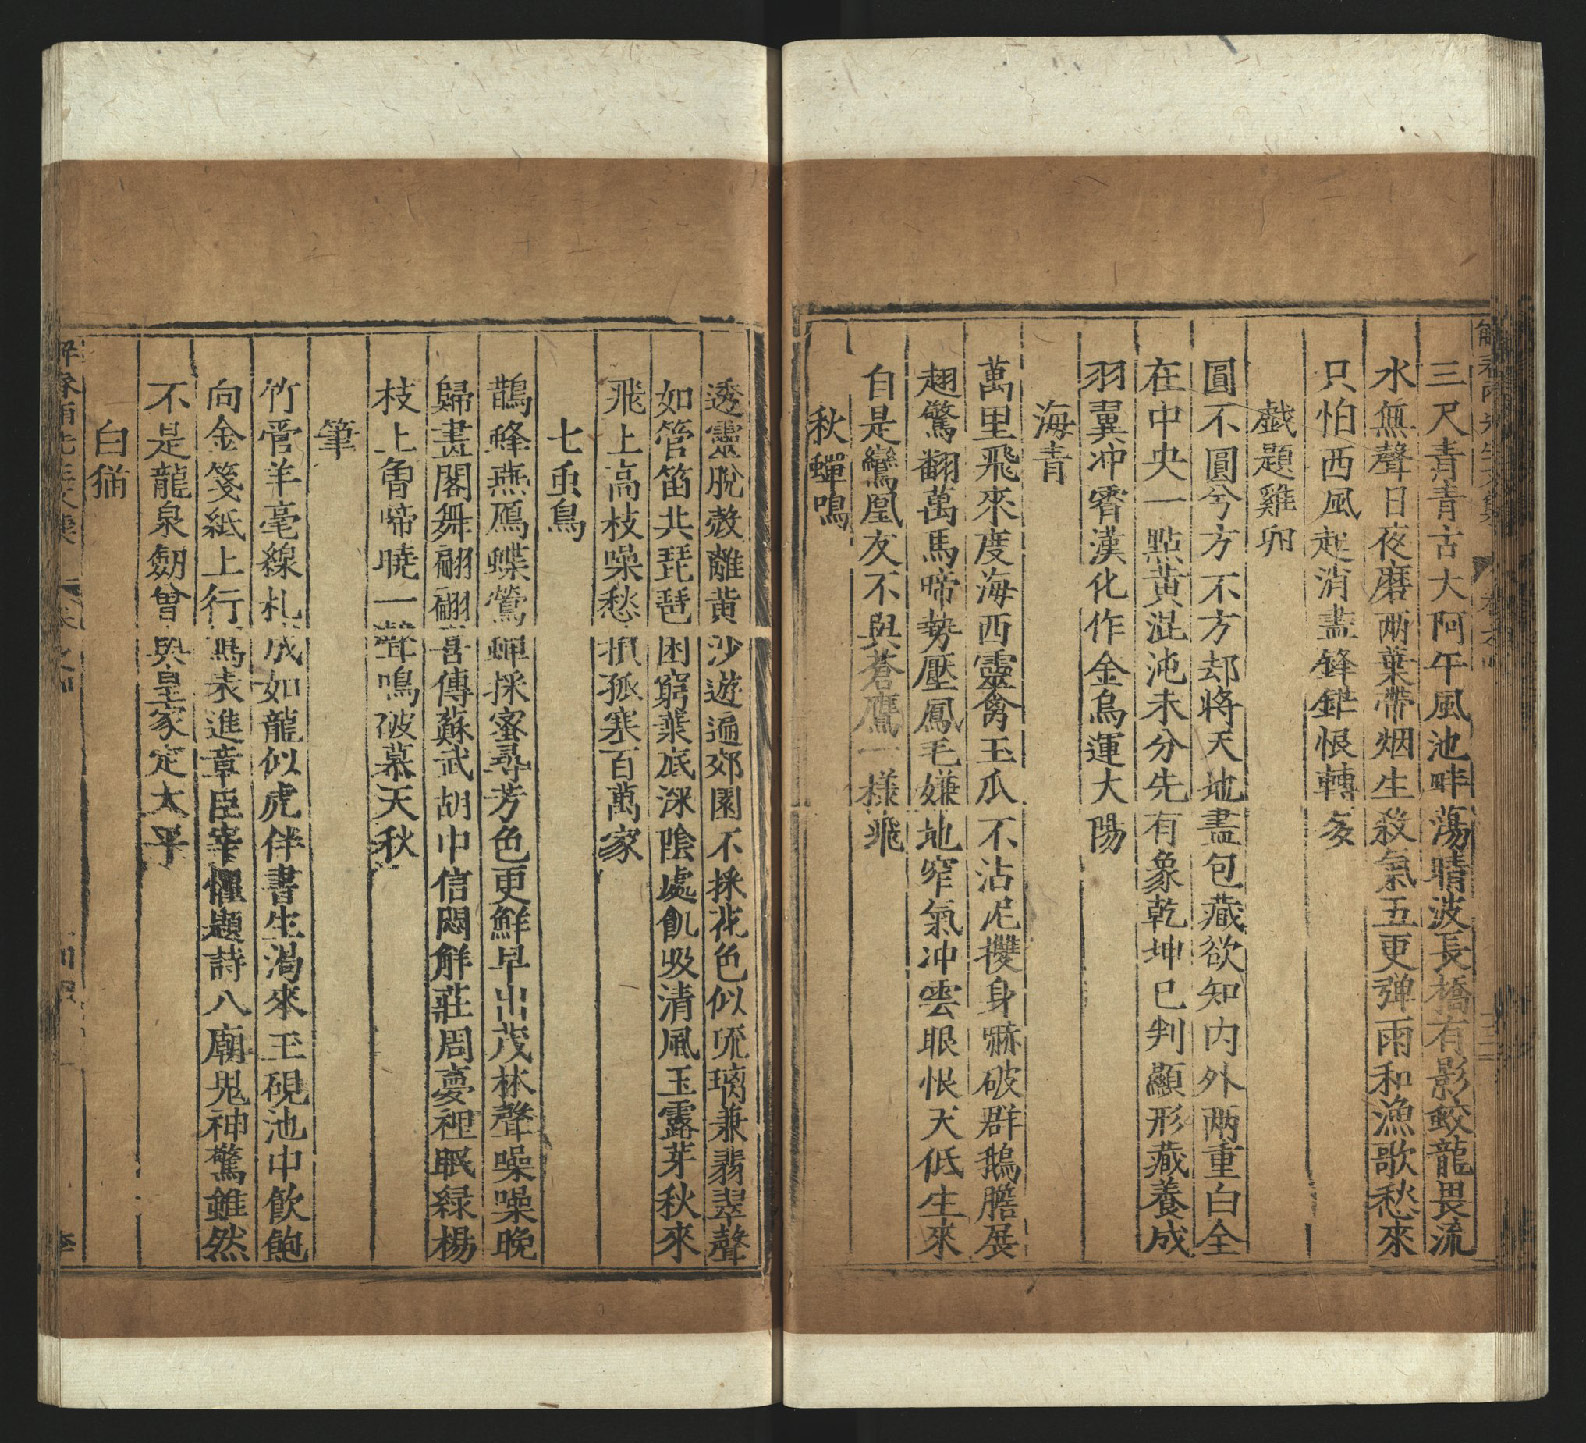 三尺青青古大阿午風池畔蕩晴波長橋有影鮫龍畏流
水無聲日夜磨两葉帶烟生殺氣五更彈雨和漁歌愁來
只怕西風起消盡鋒鋩恨轉多
戯題雞卵
圓不圓兮方不方却將天地盡包藏欲知内外两重白全
在中央一點黄混沌未分先有象乾坤已判顯形藏養成
羽翼冲霄漢化作金烏運大陽
海青
萬里飛來度海西靈禽玉爪不沾泥攖身嘛破群鵝膽展
翅驚翻萬馬啼勢壓鳳毛嫌地窄氣冲雲眼恨天低生來
自是鸞凰友不與蒼鷹一樣飛
秋蟬鳴
透靈脫殼離黄沙遊遍郊園不採花色似琉璃兼翡翠聲
如管笛共琵琶困窮葉底深陰處飢吸清風玉露芽秋來
飛上高枝噪愁損孤寒百萬家
七虫鳥
鵲蜂燕鴈蝶鶯蟬採蜜尋芳色更鮮早出茂林聲噪噪晚
歸畫閣舞翩翩喜傳蘇武胡中信悶觧莊周夢裡眠緑楊
枝上魯啼曉一聲鳴破暮天秋
筆
竹管羊毫線札成如龍似虎伴書生渴來玉硯池中飲飽
向金箋紙上行寫表進章臣宰懼題詩入廟鬼神驚雖然
不是龍泉劒曾與皇家定太平
白猫